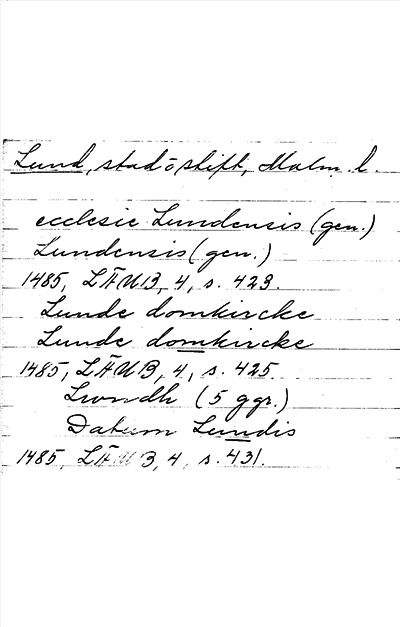 Lund, stad o stift, Malm. l.
ecclesie Lundensis (gen.)
Lundensis (gen.)
1485, LÄUB, 4, s. 423.
Lunde domkircke
Lunde domkircke
1485, LÄUB, 4, s. 425.
Lwndh (5 ggr.)
Datum Lundis
1485, LÄUB, 4, s. 431.